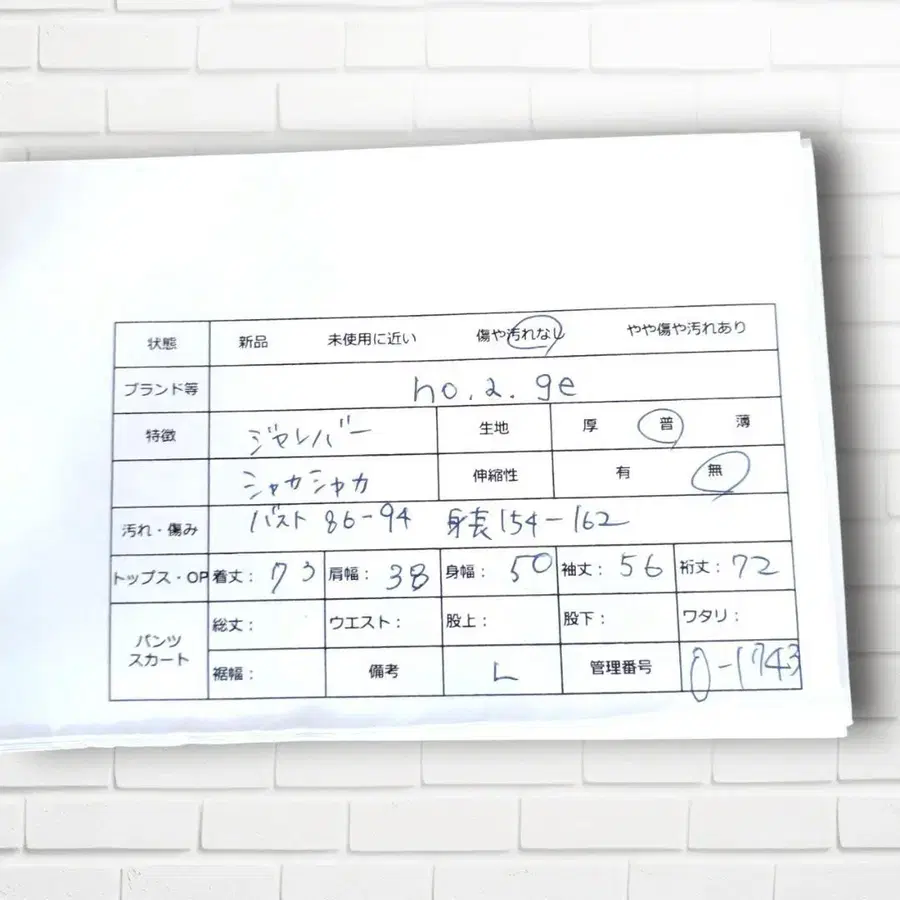 状態 新品 未使用に近い 傷や汚れなし やや傷や汚れあり
ブランド等 no.2.ge
特徴 ジャレバー 生地 厚 普 薄
シャカシャカ 伸縮性 有 無
汚れ・傷み バスト 86-94 身長154-162
トップス・OP 着丈: 73 肩幅: 38 身幅: 50 袖丈: 56 裄丈: 72
パンツ スカート 総丈: ウエスト: 股上: 股下: ワタリ:
裾幅: 備考 L 管理番号 0-1743